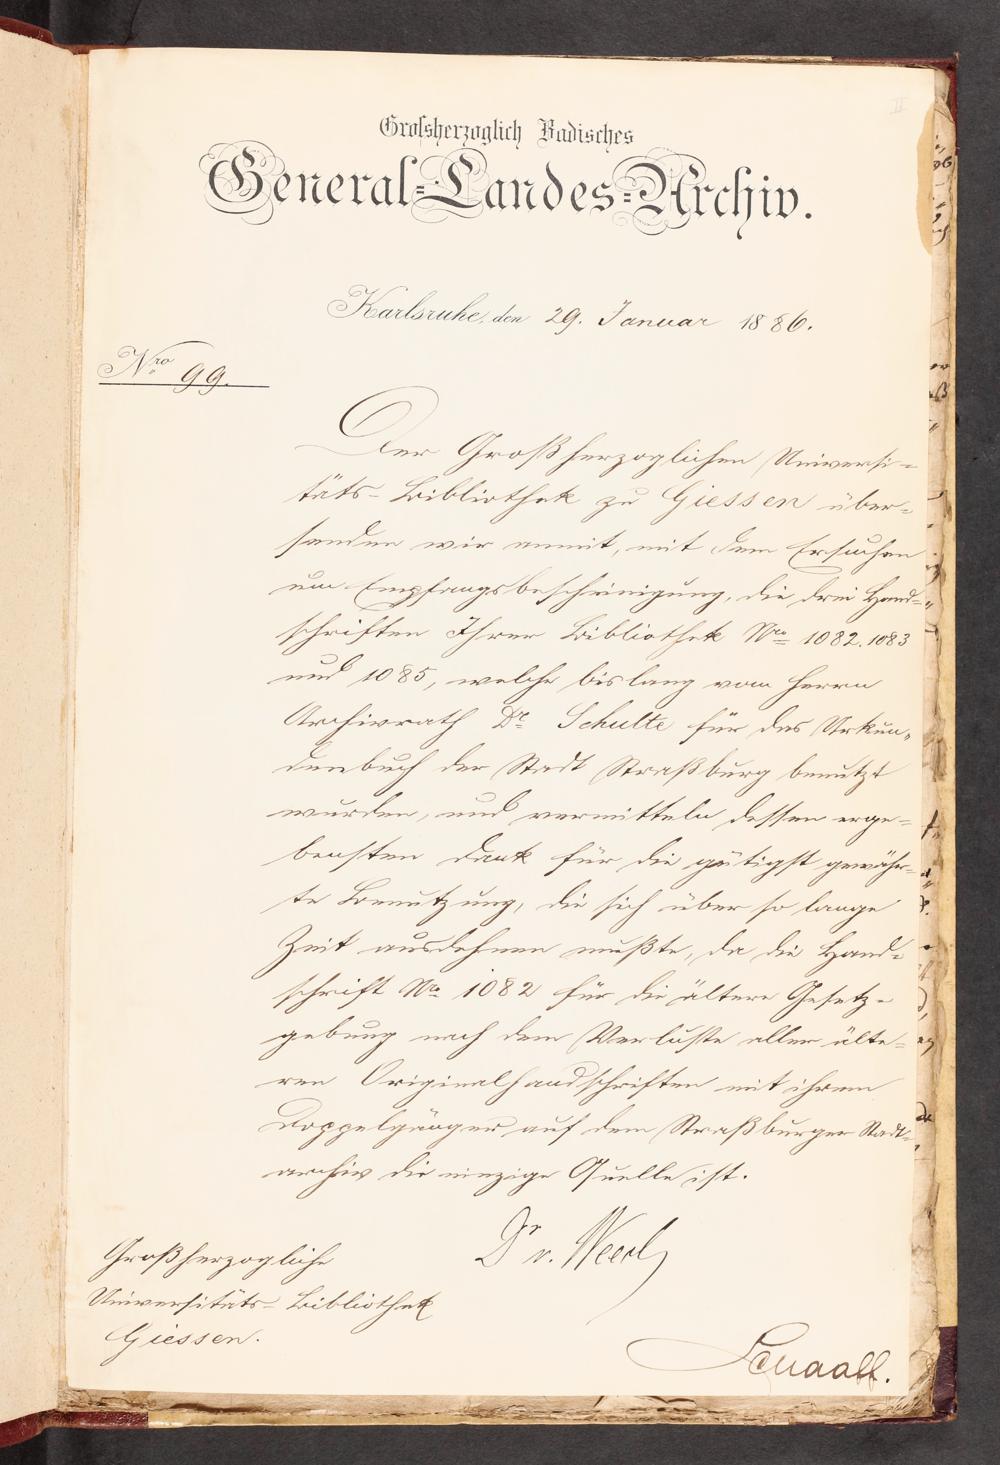 II
Grossherzoglich Badisches
General-Landes-Archiv.
Karlsruhe, den 29. Januar 1886.
Nro 99.
Der Großherzoglichen Universi-
täts-Bibliothek zu Giessen über-
senden wir anmit, mit dem Ersuchen
um Empfangsbescheinigung, die drei Hand-
schriften Ihrer Bibliothek Nro 1082. 1083
und 1085, welche bislang vom Herrn
Archivrath Dr. Schulte für das Urkun-
denbuch der Stadt Straßburg benutzt
wurden, und vermitteln dessen erge-
bensten Dank für die gütigst gewähr-
te Benutzung, die sich über so lange
Zeit ausdehnen mußte, da die Hand-
schrift No 1082 für die ältere Gesetz-
gebung nach dem Verluste aller älte-
ren Originalhandschriften mit ihrem
Doppelgänger auf dem Straßburger Stadt-
archiv die einzige Quelle ist.
Dr v. Weech
Großherzogliche
Universitäts-Bibliothek
Giessen.